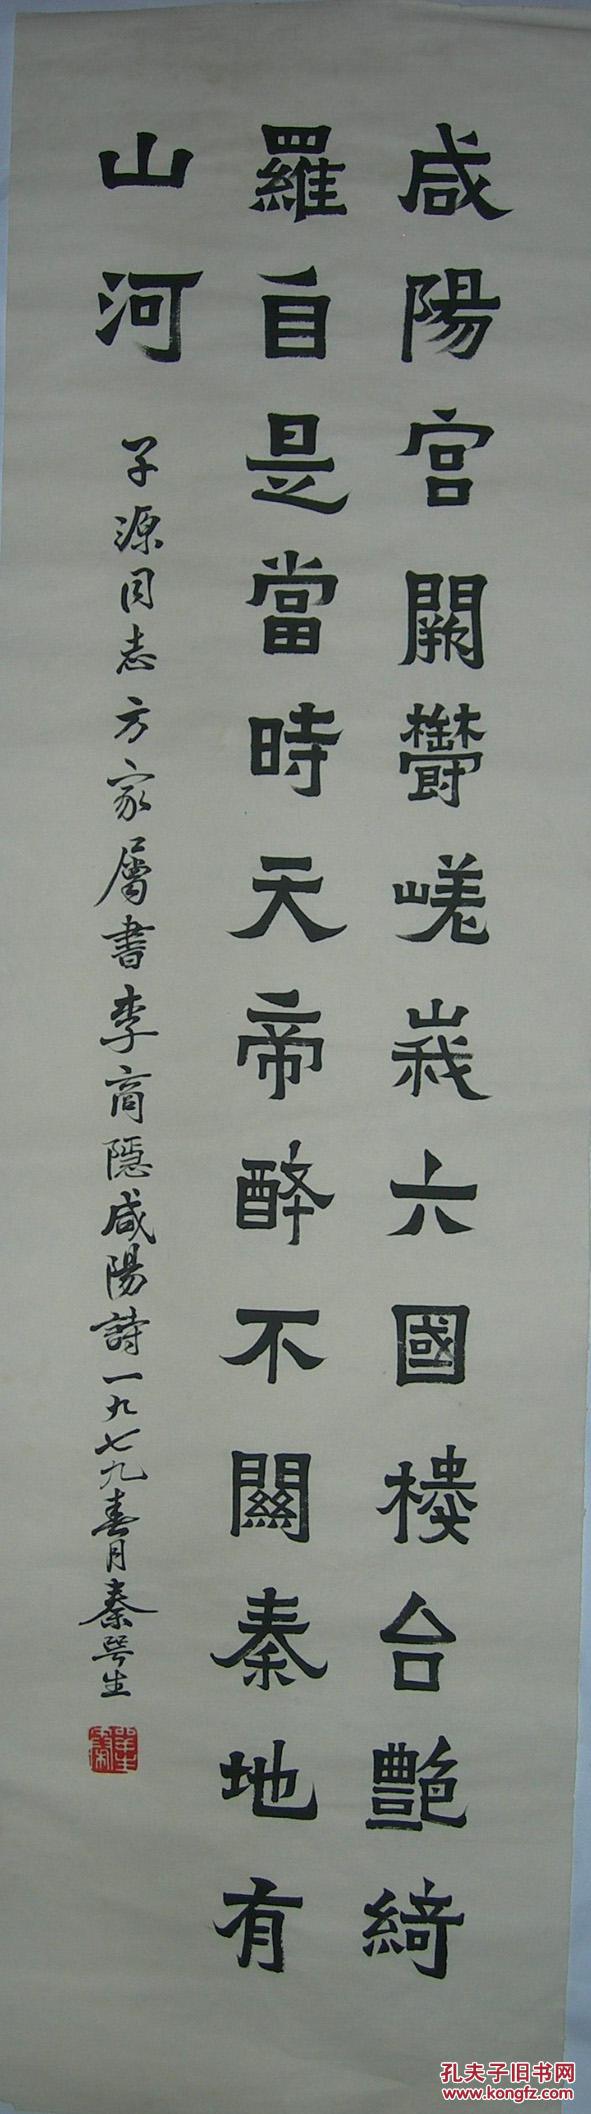 咸陽宮闕鬱嵯峩六國樓台艷綺
羅自是當時天帝醉不關秦地有
山河
子源同志方家屬書李商隱咸陽詩一九七九春月秦咢生
孔夫子旧书网
www.kongfz.com